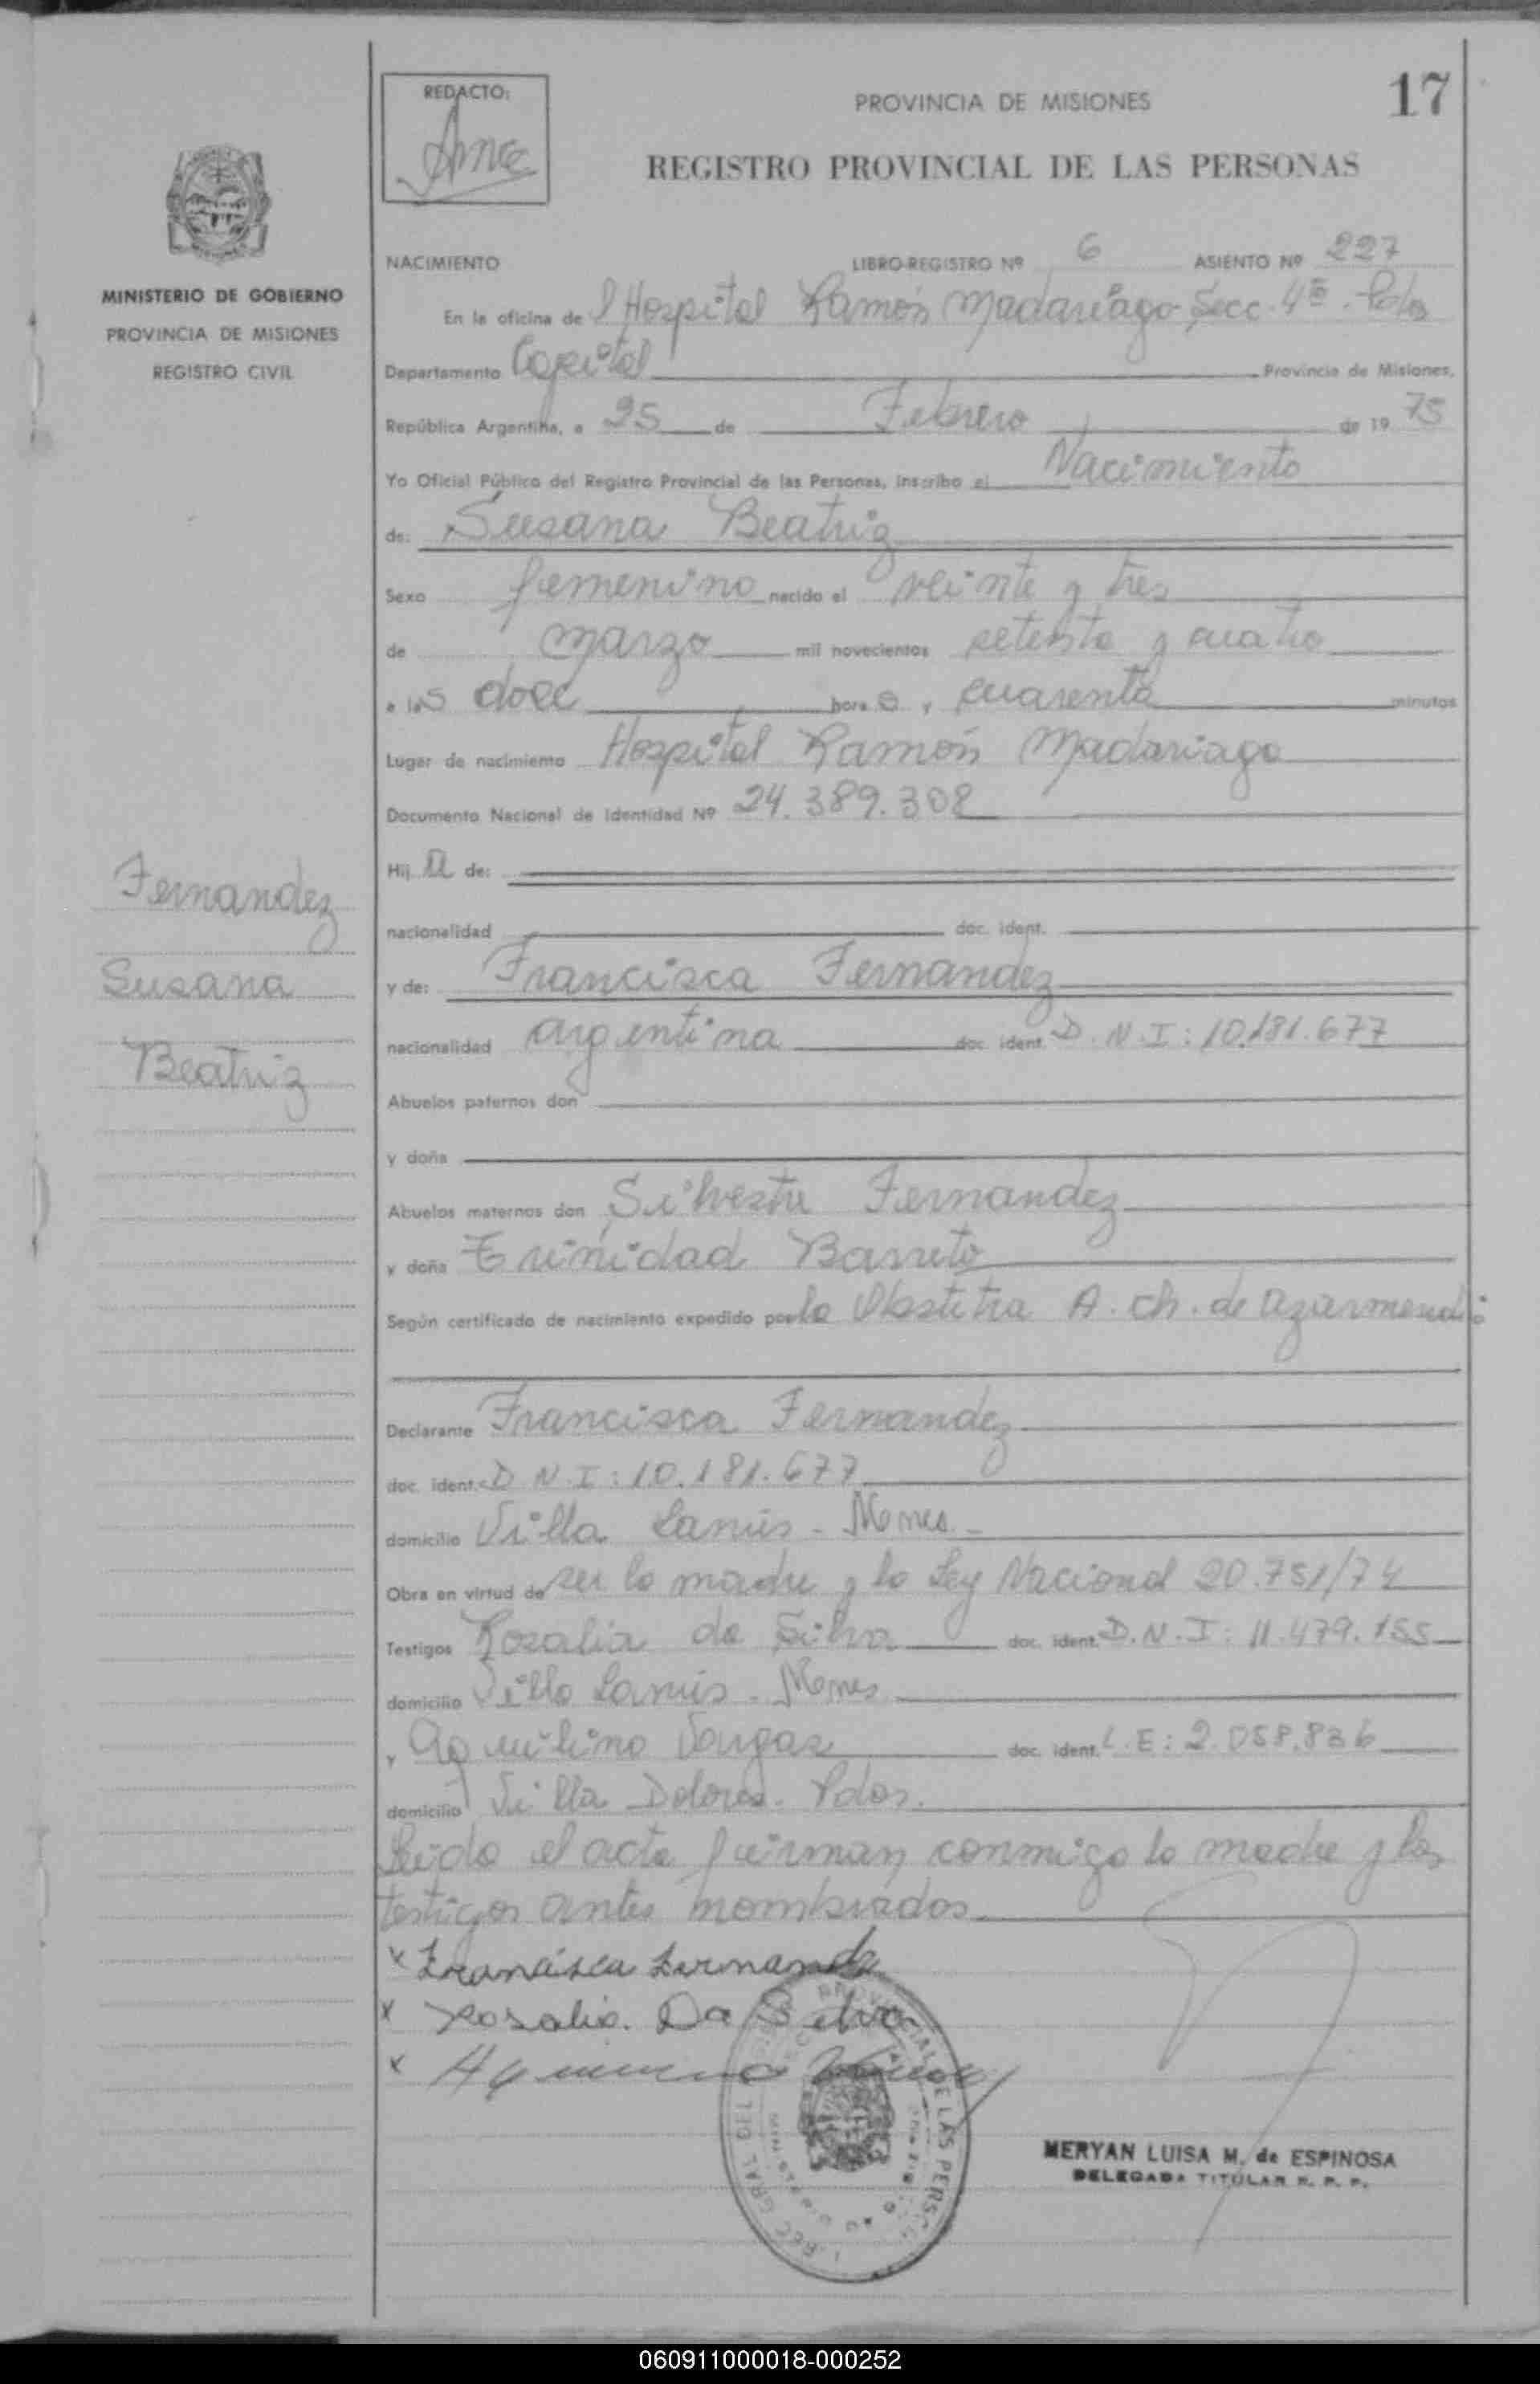 REDACTO:
PROVINCIA DE MISIONES
17
REGISTRO PROVINCIAL DE LAS PERSONAS
MINISTERIO DE GOBIERNO
PROVINCIA DE MISIONES
REGISTRO CIVIL
NACIMIENTO LIBRO-REGISTRO Nº 6 ASIENTO Nº 227
En la oficina del Hospital Ramón Madariaga Secc. 4ª. Pdas
Departamento Capital Provincia de Misiones,
República Argentina, a 25 de Febrero de 1975
Yo Oficial Público del Registro Provincial de las Personas, inscribo el Nacimiento
de: Susana Beatriz
Sexo femenino nacido el veinte y tres
de marzo mil novecientos setenta y cuatro
a las doce horas y cuarenta minutos
Lugar de nacimiento Hospital Ramón Madariaga
Documento Nacional de Identidad Nº 24.389.308
Hija de:
nacionalidad doc. ident.
Fernandez
Susana
Beatriz
y de: Francisca Fernandez
nacionalidad argentina doc. ident. D.N.I: 10.181.677
Abuelos paternos don
y doña
Abuelos maternos don Silvestre Fernandez
y doña Trinidad Barreto
Según certificado de nacimiento expedido por la Obstetra A. Ch. de Azarmendi
Declarante Francisca Fernandez
doc. ident. D.N.I: 10.181.677
domicilio Villa Lanús - Mnes.
Obra en virtud de ser la madre y la Ley Nacional 20.751/74
Testigos Rozalia da Silva doc. ident. D.N.I: 11.479.155
domicilio Villa Lanús - Mnes
y Aquilino Vargas doc. ident. L.E: 2.058.836
domicilio Villa Dolores. Pdas.
Leída el acta firman conmigo la madre y los
testigos antes nombrados
x Francisca Fernande
x Rosalia. Da Silva
x
MERYAN LUISA M. de ESPINOSA
DELEGADA TITULAR R. P. P.
060911000018-000252